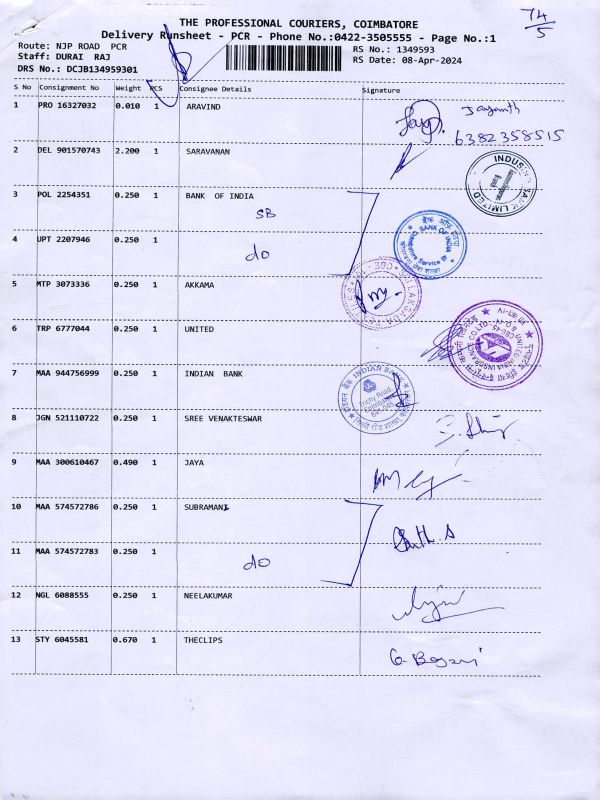 THE PROFESSIONAL COURIERS, COIMBATORE
74/5
Delivery Runsheet - PCR - Phone No.:0422-3505555 - Page No.:1
Route: NJP ROAD PCR
RS No.: 1349593
Staff: DURAI RAJ
RS Date: 08-Apr-2024
DRS No.: DCJB134959301
S No Consignment No Weight PCS Consignee Details Signature
1 PRO 16327032 0.010 1 ARAVIND Jayanth
6382358515
2 DEL 901570743 2.200 1 SARAVANAN
INDUSIND BANK LIMITED
3 POL 2254351 0.250 1 BANK OF INDIA
SB
BANK OF INDIA
4 UPT 2207946 0.250 1
do
5 MTP 3073336 0.250 1 AKKAMA
6 TRP 6777044 0.250 1 UNITED
UNITED INDIA INSURANCE CO. LTD.
7 MAA 944756999 0.250 1 INDIAN BANK
INDIAN BANK
Trichy Road
8 JGN 521110722 0.250 1 SREE VENAKTESWAR
9 MAA 300610467 0.490 1 JAYA
10 MAA 574572786 0.250 1 SUBRAMANI
11 MAA 574572783 0.250 1
do
12 NGL 6088555 0.250 1 NEELAKUMAR
13 STY 6045581 0.670 1 THECLIPS